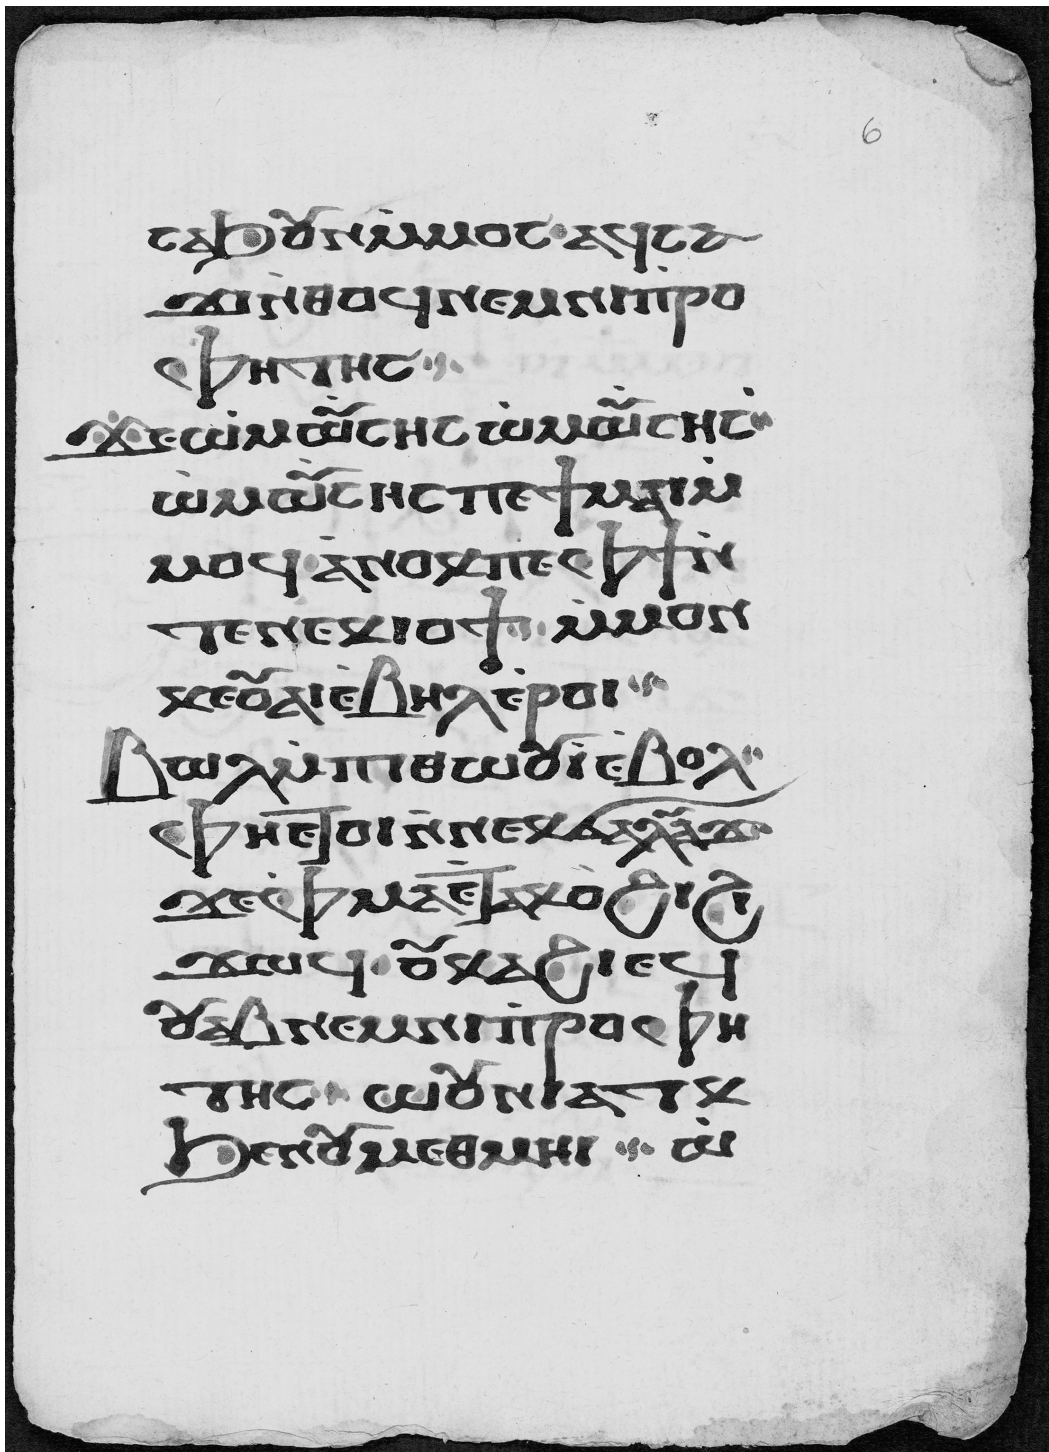 6
ⲥⲁϧⲟⲩⲛ ⲙ̀ⲙⲟⲥ ⲁϥⲥⲁ
ϫⲓ ⲛ̀ⲑⲟϥ ⲛⲉⲙ ⲛⲓⲡ̀ⲣⲟ
ⲫⲏⲧⲏⲥ
ϫⲉ ⲱ̀ ⲙⲱⲩ̀ⲥⲏⲥ ⲱ̀ ⲙⲱⲩ̀ⲥⲏⲥ
ⲱ̀ ⲙⲱⲩ̀ⲥⲏⲥ ⲡⲉϯⲙⲁⲓ ⲙ̀
ⲙⲟϥ ⲁ̀ⲛⲟⲕ ⲡⲉ ⲫϯ ⲛ̀
ⲧⲉ ⲛⲉⲕⲓⲟϯ ⲙ̀ⲙⲟⲛ
ⲕⲉⲟⲩⲁⲓ ⲉ̀ⲃⲏⲗ ⲉ̀ⲣⲟⲓ
ⲃⲱⲗ ⲙ̀ⲡⲓⲑⲱⲟⲩⲓ̀ ⲉ̀ⲃⲟⲗ
ⲫⲏ ⲉⲧⲟⲓ ⲛ̀ⲛⲉⲕϭⲁⲗⲁⲩϫ
ϫⲉ ⲫ̀ⲙⲁ ⲉ̀ⲧⲁⲕⲟ̀ϩⲓ ϩⲓ
ϫⲱϥ ⲟⲩⲕⲁϩⲓ ⲉϥ
ⲟⲩⲁⲃ ⲛⲉⲙ ⲛⲓⲡ̀ⲣⲟⲫⲏ
ⲧⲏⲥ ⲱⲟⲩⲛⲓⲁⲧⲕ
ϧⲉⲛ ⲟⲩⲙⲉⲑⲙⲏⲓ ⲱ̀